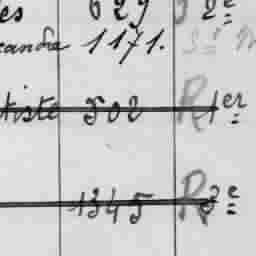 es 629 2e
xandre 1171.
tiste 502 R 1er
1345 R 3e